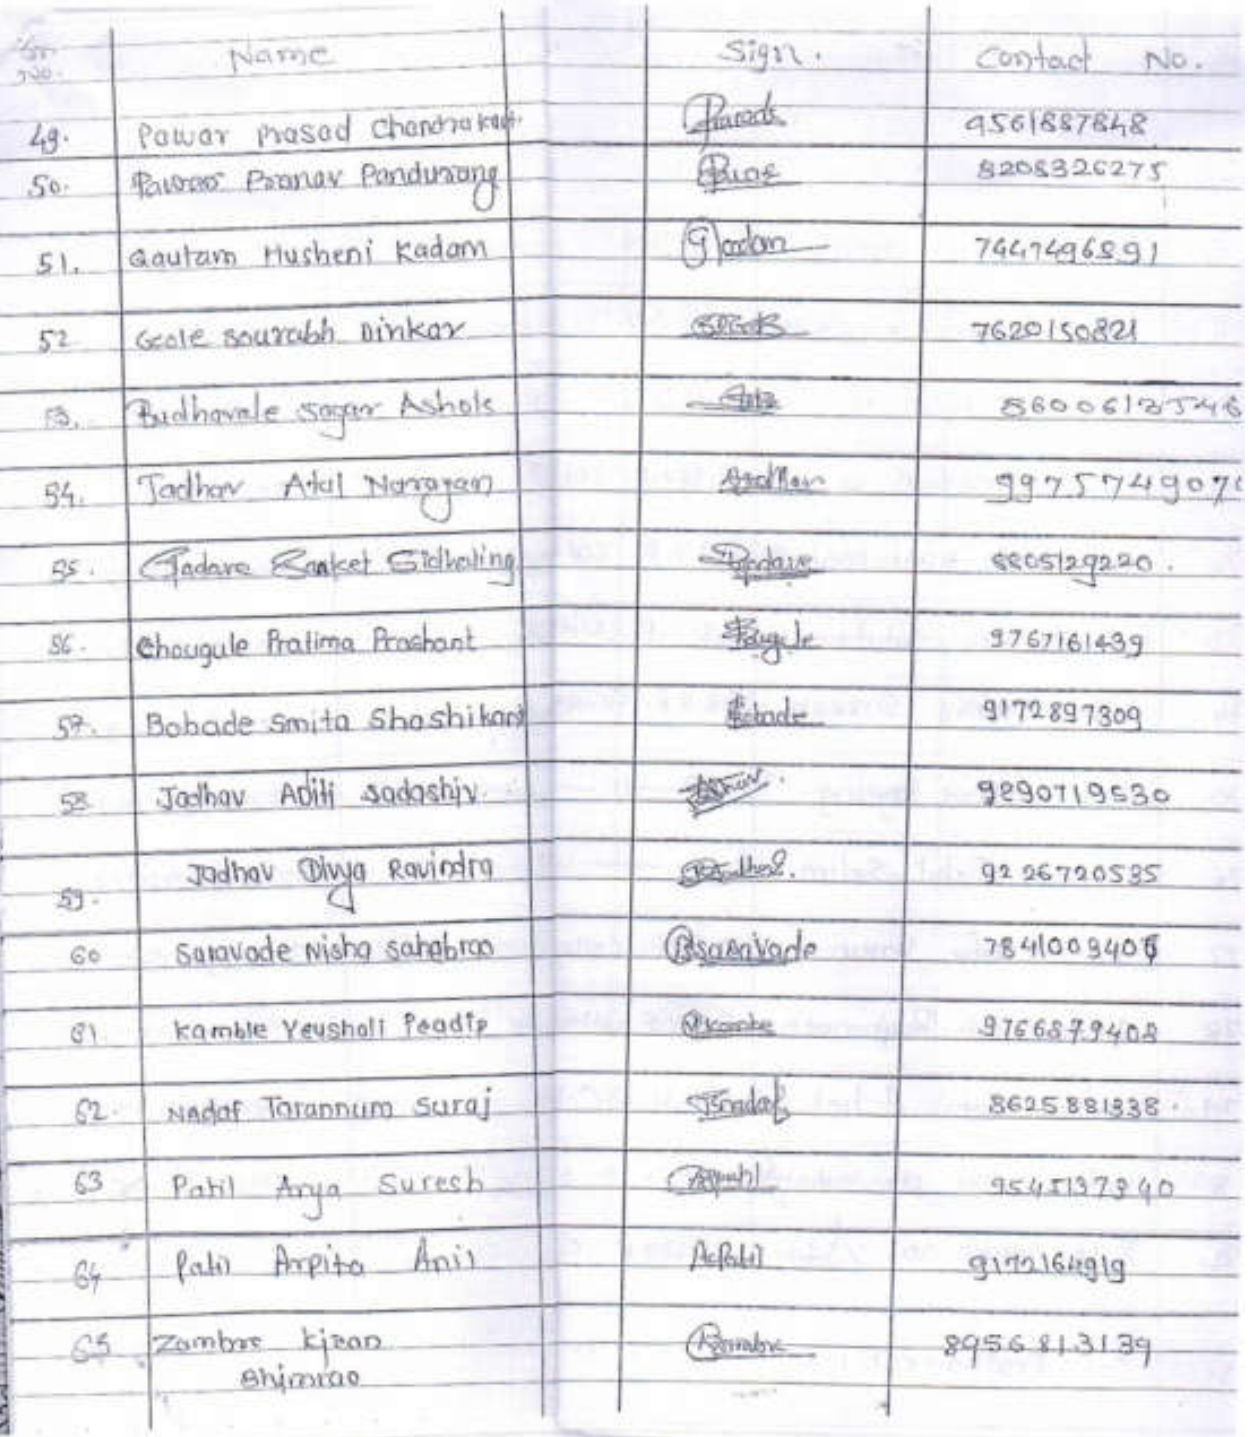 Sr. No. Name Sign. Contact No.
49. Pawar Prasad Chandrakant. 9561887848
50. Pawar Pranav Pandurang 8208326275
51. Gautam Husheni Kadam Gkadam 7447496891
52 Gole Sourabh Dinkar 7620150821
53. Budhavale Sagar Ashok
54. Jadhav Atul Narayan Jadhav
55. Gadave Sanket Sidhaling Gadave 8805129220.
56. Chougule Pratima Prashant 9767161439
57. Bobade Smita Shashikant Bobade 9172897309
58 Jadhav Aditi Sadashiv 9890719530
59. Jadhav Divya Ravindra 9226720535
60 Saravade Nisha Sahebrao Saravade
61. Kamble Vrushali Pradip 9766879408
62. Nadaf Tarannum Suraj Tsnadaf 8625881338.
63 Patil Arya Suresh
64 Patil Arpita Anil AcPatil 9172164919
65 Zambre Kiran 8956813139
Bhimrao